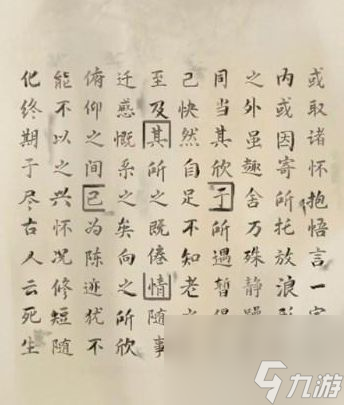 或取诸怀抱悟言一
内或因寄所托放浪
之外虽趣舍万殊静躁
同当其欣于所遇暂得
己快然自足不知老
至及其所之既倦情随事
迁感慨系之矣向之所欣
俯仰之间已为陈迹犹不
能不以之兴怀况修短随
化终期于尽古人云死生
九游